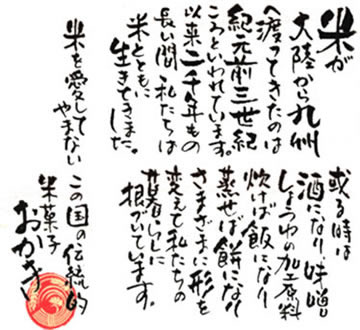 米が
大陸から九州
へ渡ってきたのは
紀元前三世紀
ころといわれています。
以来二千年もの
長い間 私たちは
米とともに
生きてきました。
或る時は
酒になり味噌
しょうゆの加工原料
炊けば飯になり
蒸せば餅になり
さまざまに形を
変えて私たちの
暮らしに
根づいています。
米を愛して
やまない
この国の伝統的
米菓子
おかき